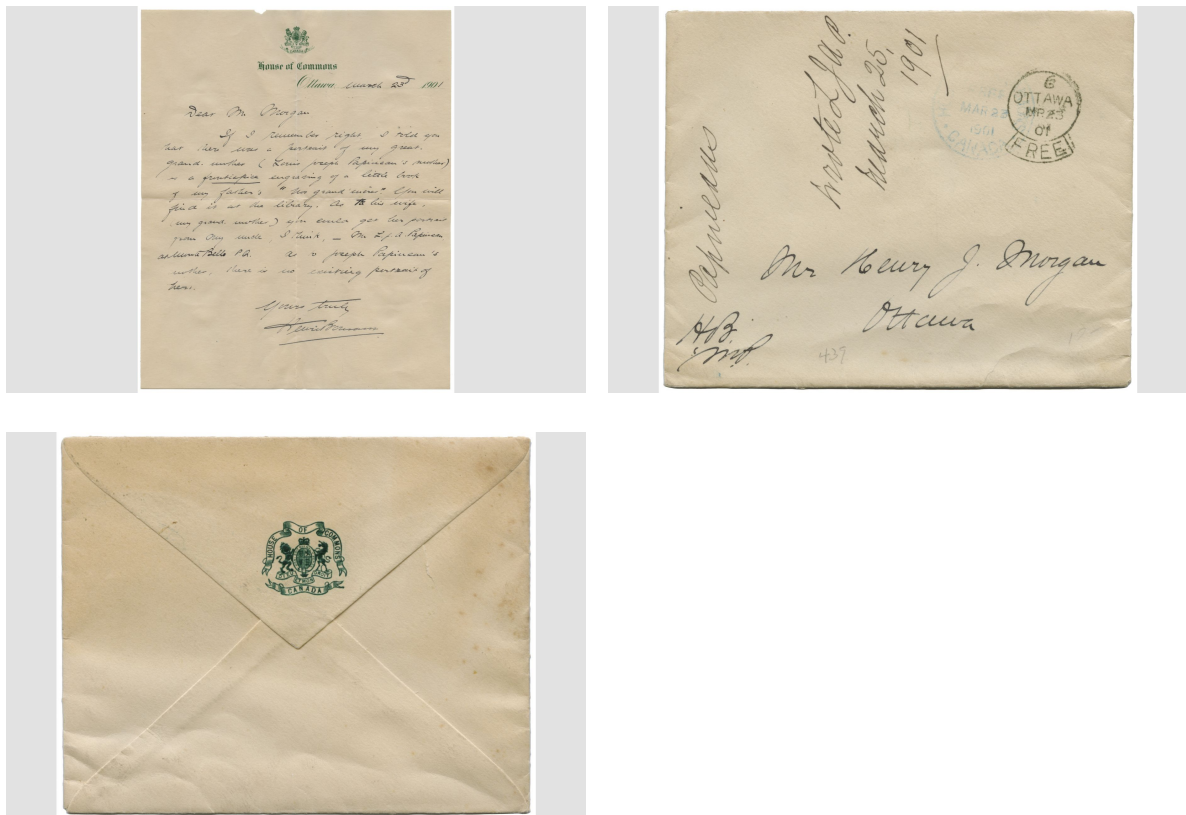 House of Commons
Ottawa March 23rd 1901
Dear Mr Morgan
If I remember right I told you
that there was a portrait of my great
grand-mother (Louis Joseph Papineau's mother)
in a frontispiece engraving of a little book
of my father's You will
find it at the library. As to his wife,
my grand-mother) you could get her portrait
from my uncle, I think, — Mr L. J. A. Papineau
at Monte Bello P.Q. As to Joseph Papineau's
mother, there is no existing portrait of
hers.
Yours truly
Henri Bourassa
Papineaus
wrote L.J.A.P.
March 25,
1901
MAR 23
1901
CANADA
6
OTTAWA
MR 23
01
FREE
Mr Henry J. Morgan
Ottawa
H.B.
MP.
439
HOUSE OF COMMONS
CANADA